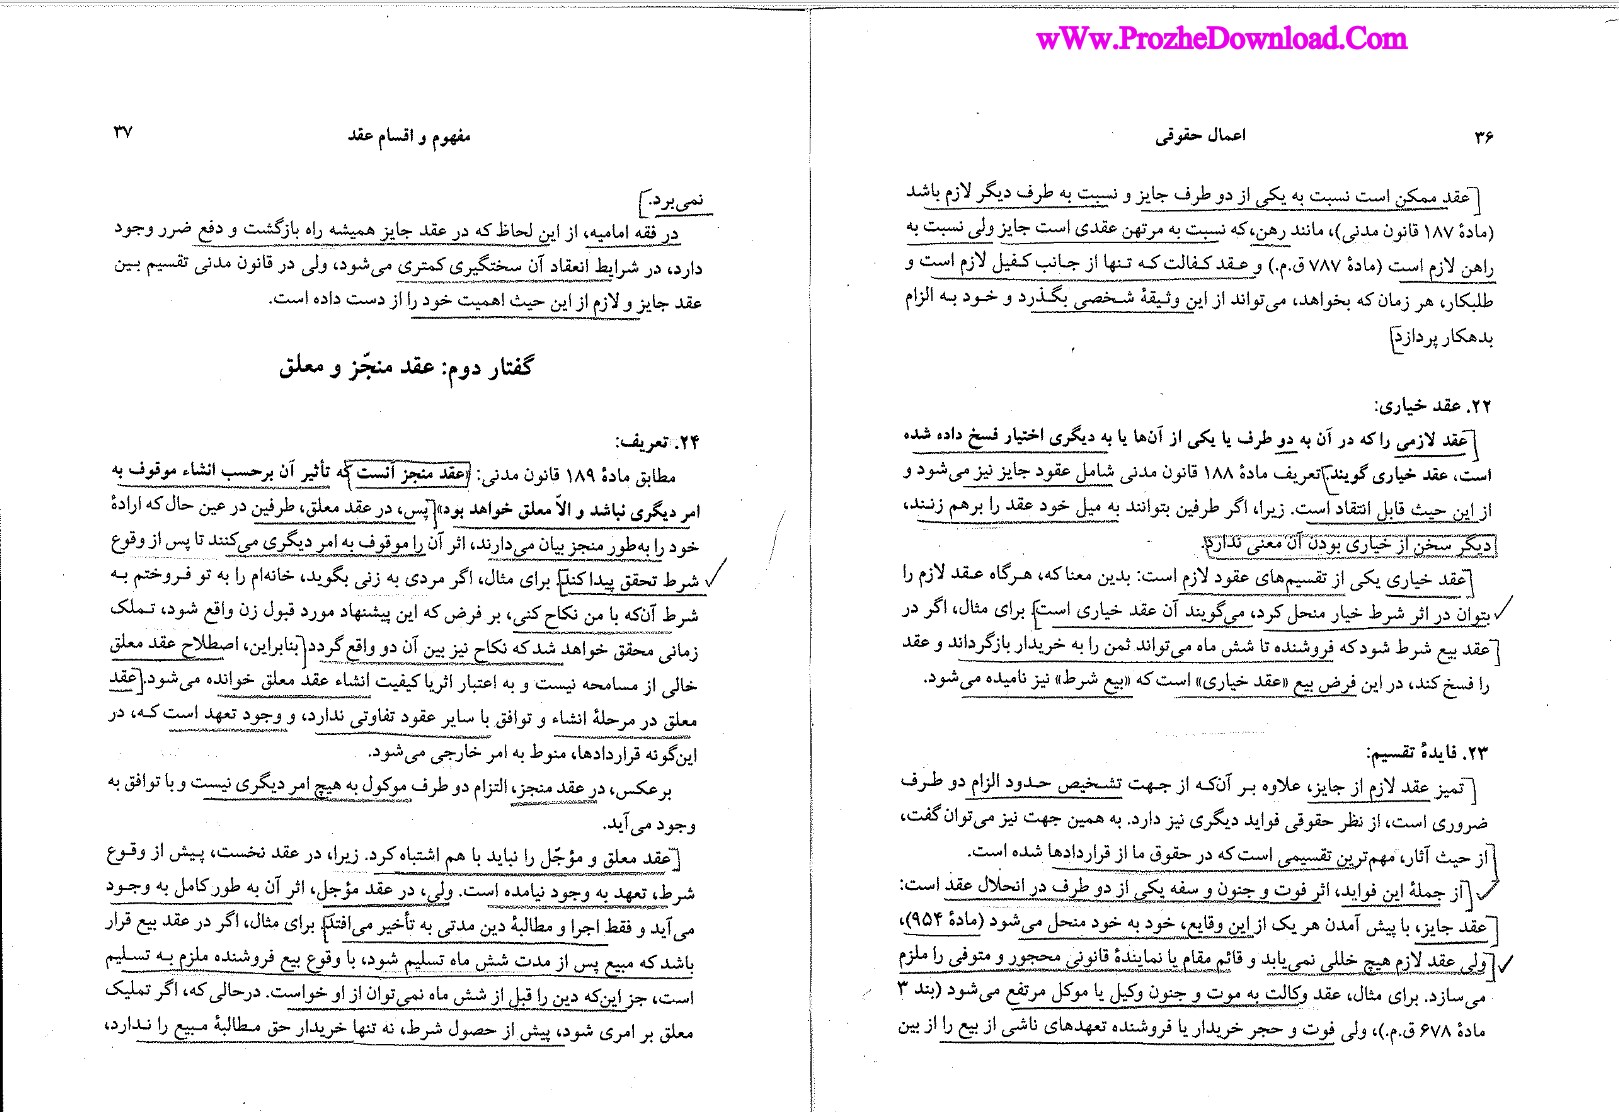 wWw.ProzheDownload.Com
۳۶
اعمال حقوقی
عقد ممکن است نسبت به یکی از دو طرف جایز و نسبت به طرف دیگر لازم باشد
(مادهٔ ۱۸۷ قانون مدنی)، مانند رهن، که نسبت به مرتهن عقدی است جایز ولی نسبت به
راهن لازم است (مادهٔ ۷۸۷ ق.م.) و عقد کفالت که تنها از جانب کفیل لازم است و
طلبکار، هر زمان که بخواهد، می‌تواند از این وثیقهٔ شخصی بگذرد و خود به الزام
بدهکار پردازد
۲۲. عقد خیاری:
عقد لازمی را که در آن به دو طرف یا یکی از آن‌ها یا به دیگری اختیار فسخ داده شده
است، عقد خیاری گویند. تعریف مادهٔ ۱۸۸ قانون مدنی شامل عقود جایز نیز می‌شود و
از این حیث قابل انتقاد است. زیرا، اگر طرفین بتوانند به میل خود عقد را برهم زنند،
دیگر سخن از خیاری بودن آن معنی ندارد.
عقد خیاری یکی از تقسیم‌های عقود لازم است: بدین معنا که، هرگاه عقد لازم را
بتوان در اثر شرط خیار منحل کرد، می‌گویند آن عقد خیاری است. برای مثال، اگر در
عقد بیع شرط شود که فروشنده تا شش ماه می‌تواند ثمن را به خریدار بازگرداند و عقد
را فسخ کند، در این فرض بیع «عقد خیاری» است که «بیع شرط» نیز نامیده می‌شود.
۲۳. فایدهٔ تقسیم:
تمیز عقد لازم از جایز، علاوه بر آن‌که از جهت تشخیص حدود الزام دو طرف
ضروری است، از نظر حقوقی فواید دیگری نیز دارد. به همین جهت نیز می‌توان گفت،
از حیث آثار، مهم‌ترین تقسیمی است که در حقوق ما از قراردادها شده است.
از جملهٔ این فواید، اثر فوت و جنون و سفه یکی از دو طرف در انحلال عقد است:
عقد جایز، با پیش آمدن هر یک از این وقایع، خود به خود منحل می‌شود (مادهٔ ۹۵۴)،
ولی عقد لازم هیچ خللی نمی‌یابد و قائم مقام یا نمایندهٔ قانونی محجور و متوفی را ملزم
می‌سازد. برای مثال، عقد وکالت به موت و جنون وکیل یا موکل مرتفع می‌شود (بند ۳
مادهٔ ۶۷۸ ق.م.)، ولی فوت و حجر خریدار یا فروشنده تعهدهای ناشی از بیع را از بین
مفهوم و اقسام عقد
۳۷
نمی‌برد.
در فقه امامیه، از این لحاظ که در عقد جایز همیشه راه بازگشت و دفع ضرر وجود
دارد، در شرایط انعقاد آن سختگیری کمتری می‌شود، ولی در قانون مدنی تقسیم بین
عقد جایز و لازم از این حیث اهمیت خود را از دست داده است.
گفتار دوم: عقد منجّز و معلق
۲۴. تعریف:
مطابق مادهٔ ۱۸۹ قانون مدنی: «عقد منجز آنست که تأثیر آن برحسب انشاء موقوف به
امر دیگری نباشد و الاّ معلق خواهد بود» پس، در عقد معلق، طرفین در عین حال که ارادهٔ
خود را به‌طور منجز بیان می‌دارند، اثر آن را موقوف به امر دیگری می‌کنند تا پس از وقوع
شرط تحقق پیدا کند. برای مثال، اگر مردی به زنی بگوید، خانه‌ام را به تو فروختم به
شرط آن‌که با من نکاح کنی، بر فرض که این پیشنهاد مورد قبول زن واقع شود، تملک
زمانی محقق خواهد شد که نکاح نیز بین آن دو واقع گردد بنابراین، اصطلاح عقد معلق
خالی از مسامحه نیست و به اعتبار اثر یا کیفیت انشاء عقد معلق خوانده می‌شود. عقد
معلق در مرحلهٔ انشاء و توافق با سایر عقود تفاوتی ندارد، و وجود تعهد است که، در
این‌گونه قراردادها، منوط به امر خارجی می‌شود.
برعکس، در عقد منجز، التزام دو طرف موکول به هیچ امر دیگری نیست و با توافق به
وجود می‌آید.
عقد معلق و مؤجّل را نباید با هم اشتباه کرد. زیرا، در عقد نخست، پیش از وقوع
شرط، تعهد به وجود نیامده است. ولی، در عقد مؤجل، اثر آن به طور کامل به وجود
می‌آید و فقط اجرا و مطالبهٔ دین مدتی به تأخیر می‌افتد. برای مثال، اگر در عقد بیع قرار
باشد که مبیع پس از مدت شش ماه تسلیم شود، با وقوع بیع فروشنده ملزم به تسلیم
است، جز این‌که دین را قبل از شش ماه نمی‌توان از او خواست. درحالی که، اگر تملیک
معلق بر امری شود، پیش از حصول شرط، نه تنها خریدار حق مطالبهٔ مبیع را ندارد،